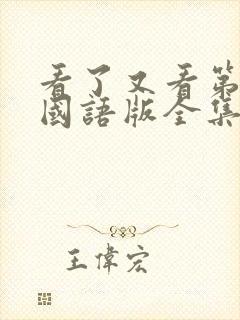 看了又看第
國語版全集
王偉宏